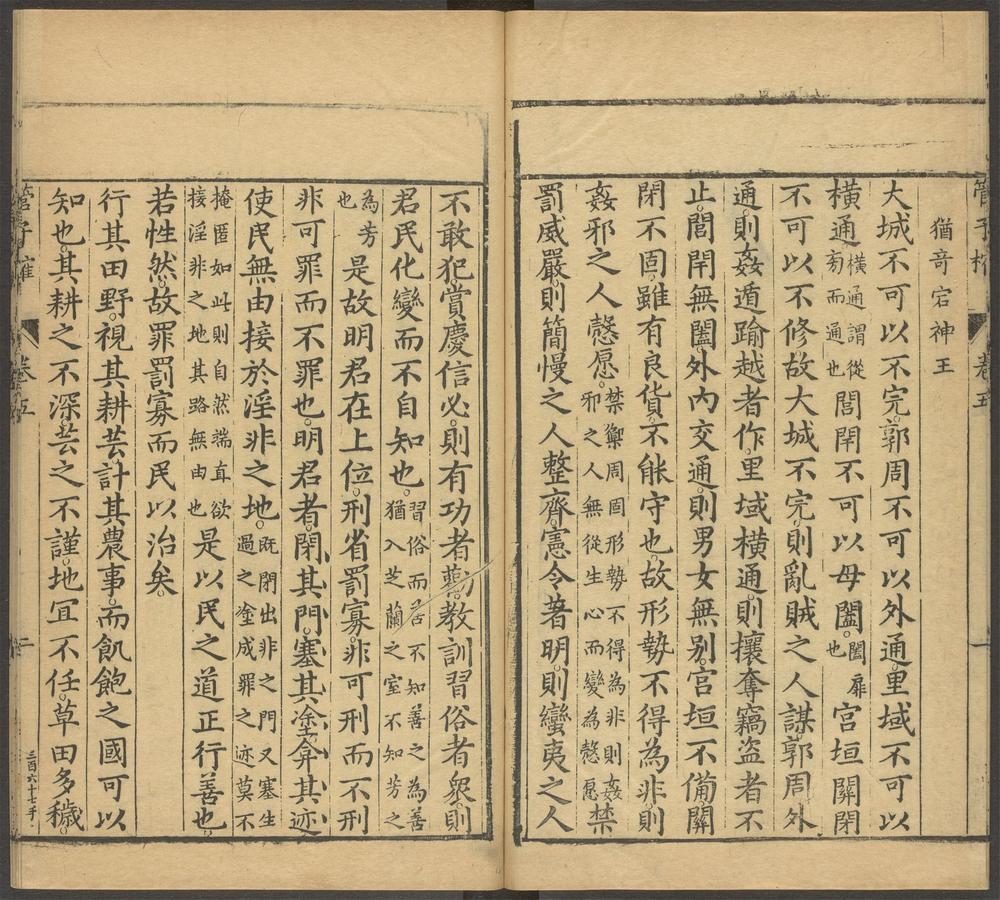 管子榷 卷五 一
猶奇宕神王
大城不可以不完郭周不可以外通里域不可以
橫通橫通謂從旁而通也閭閈不可以毋闔闔扉也宮垣關閉
不可以不修故大城不完則亂賊之人謀郭周外
通則姦遁踰越者作里域橫通則攘奪竊盜者不
止閭閈無闔外內交通則男女無別宮垣不備關
閉不固雖有良貨不能守也故形勢不得為非則
姦邪之人慤愿禁禦周固形勢不得為非則姦邪之人無從生心而變為慤愿禁
罰威嚴則簡慢之人整齊憲令著明則蠻夷之人
不敢犯賞慶信必則有功者勸教訓習俗者衆則
君民化變而不自知也習俗而善不知善之為善猶入芝蘭之室不知芳之
為芳也是故明君在上位刑省罰寡非可刑而不刑
非可罪而不罪也明君者閉其門塞其塗弇其迹
使民無由接於淫非之地既閉出非之門又塞生過之塗成罪之迹莫不
掩匿如此則自然端直欲接淫非之地其路無由也是以民之道正行善也
若性然故罪罰寡而民以治矣
行其田野視其耕芸計其農事而飢飽之國可以
知也其耕之不深芸之不謹地宜不任草田多穢
管子榷 卷五 二 三百六十七手